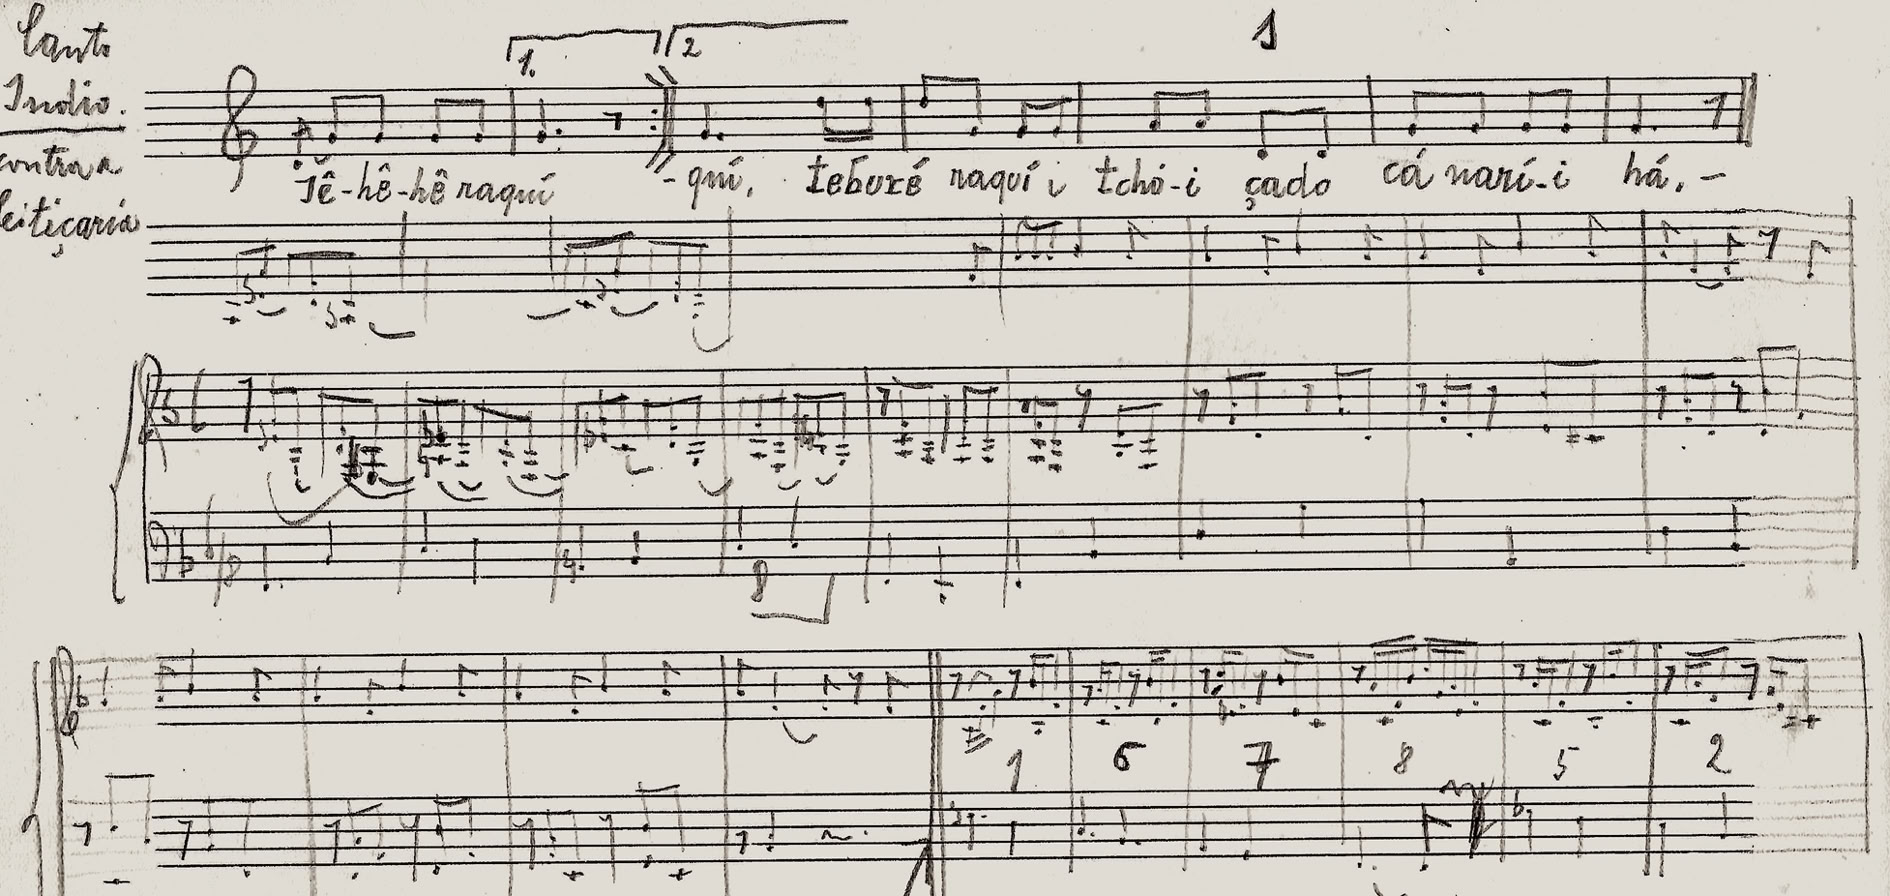 Canto
Indio.
contra a
feitiçaria
1. 2 1
Jê-hê-hê naquí -quí, teburé naquí i tchó-i çado cá narí-i há. -
8
1 6 7 8 5 2